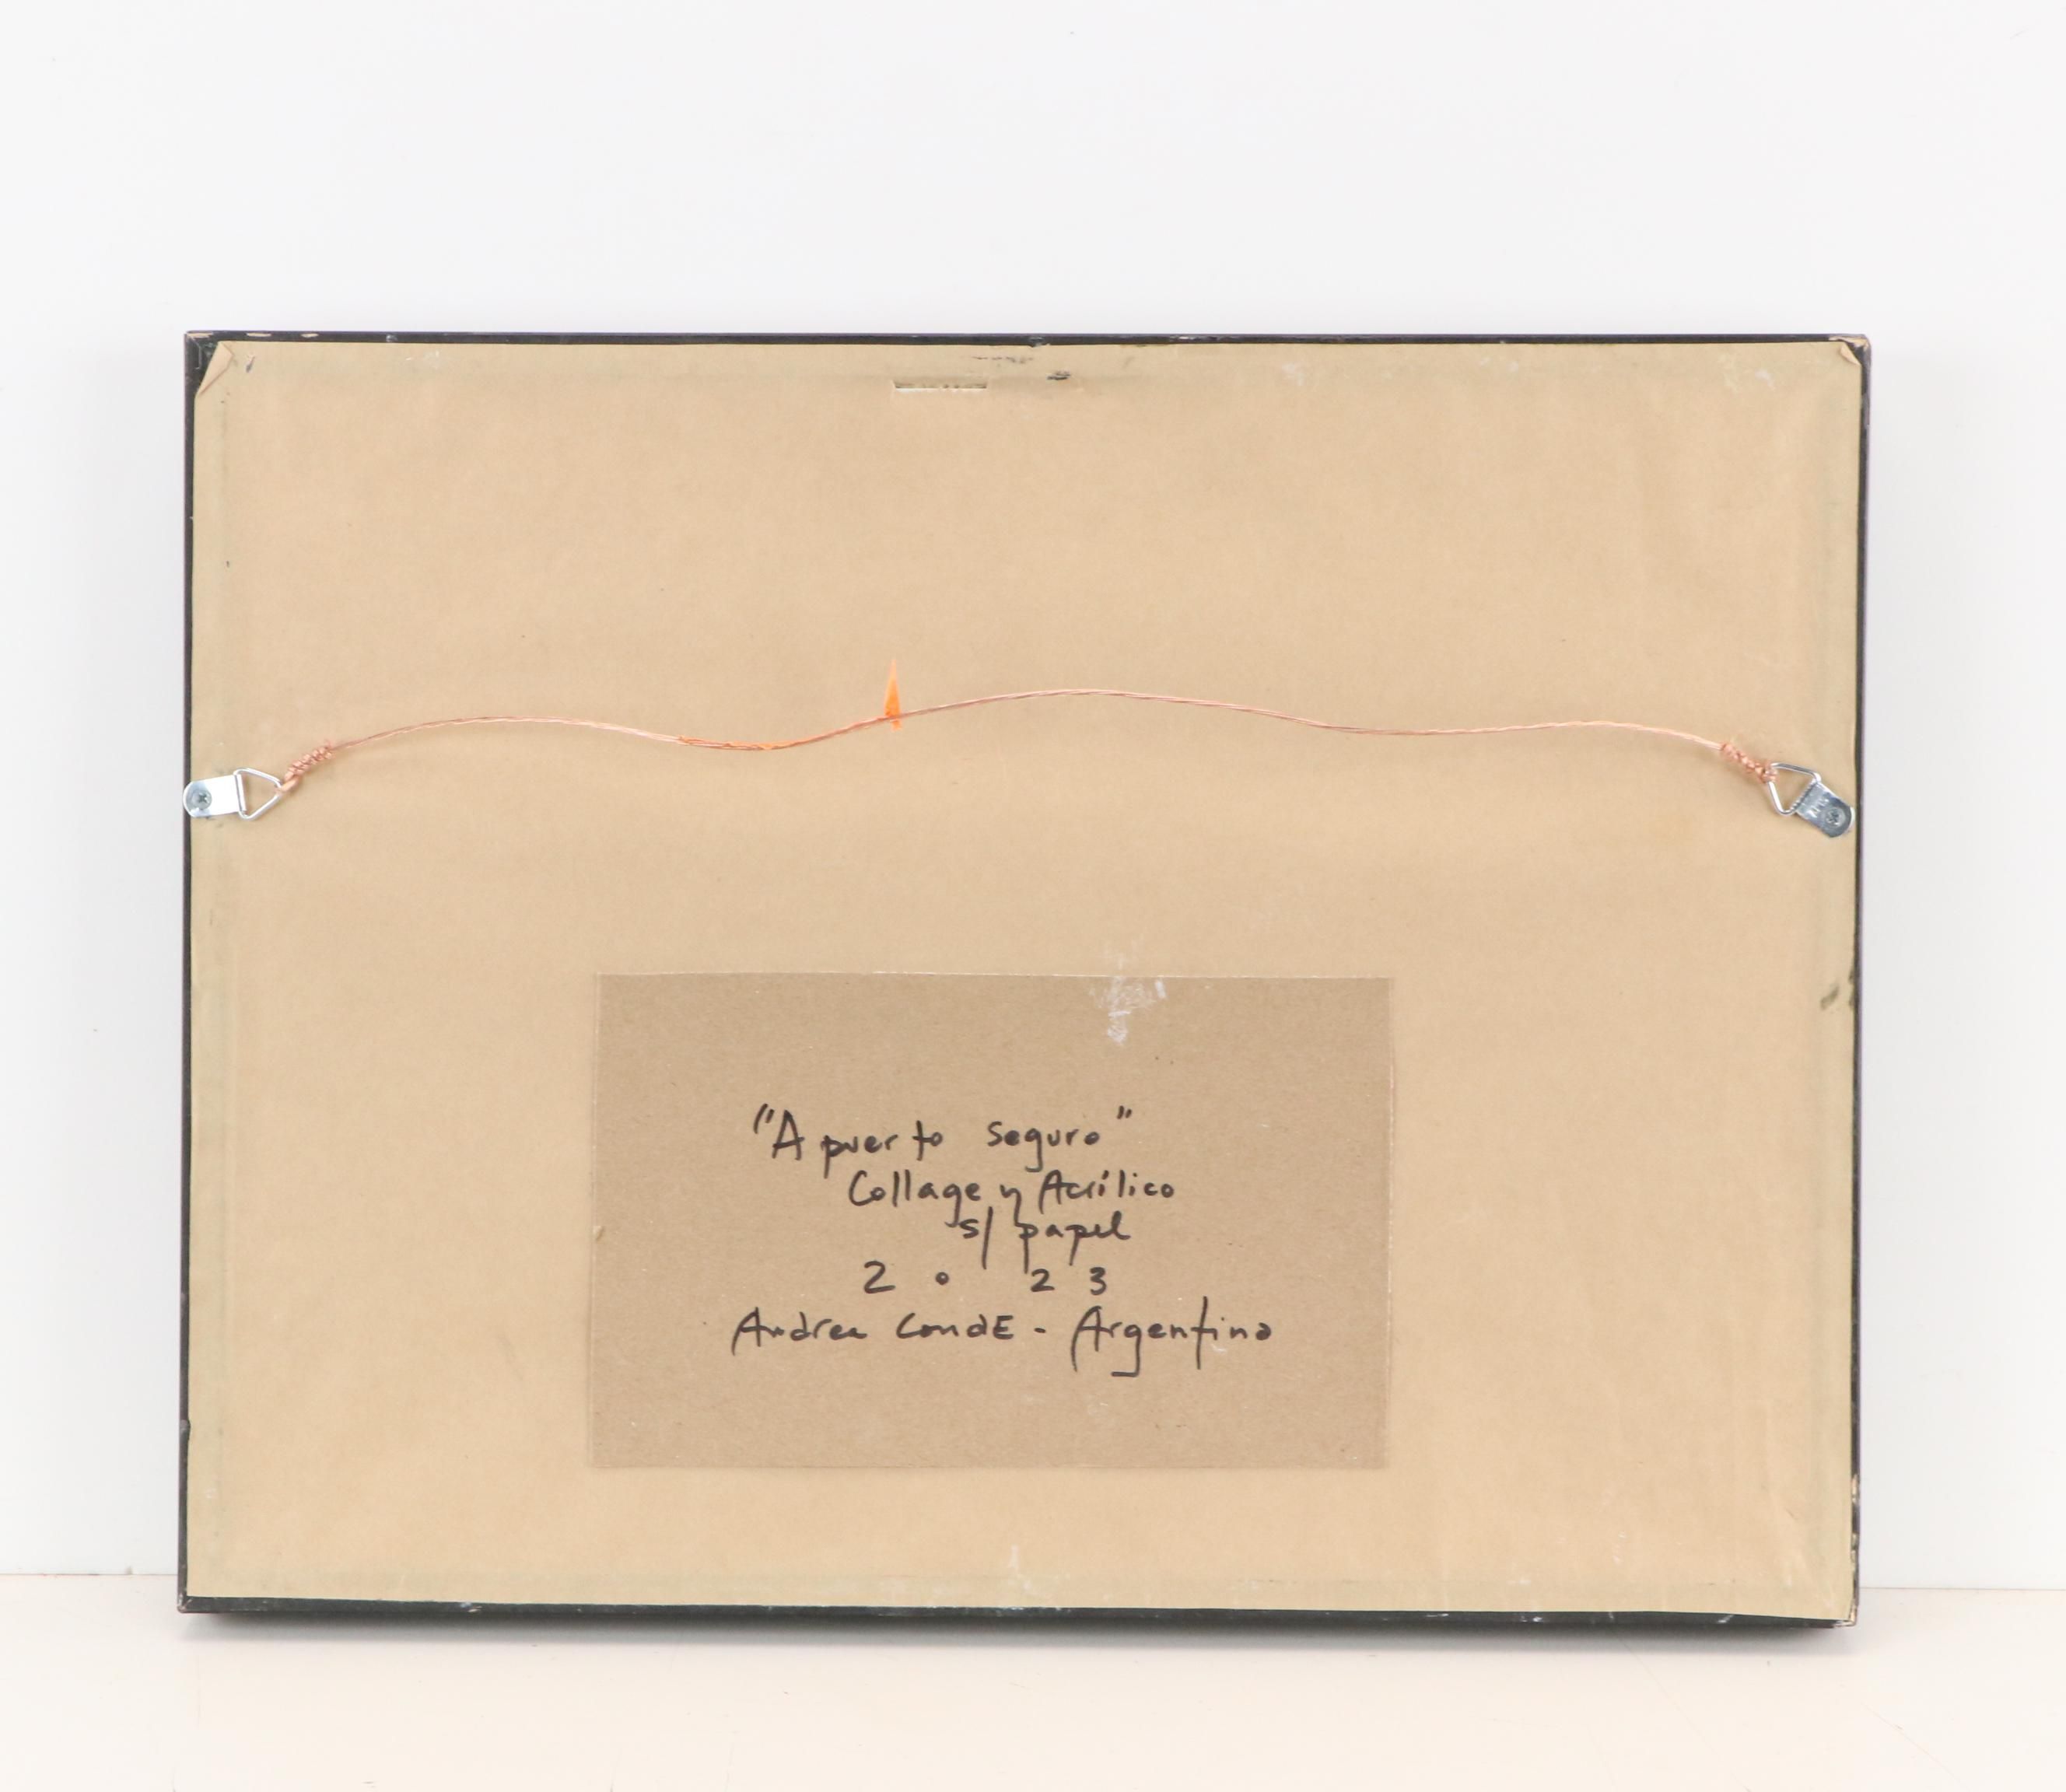 "A puerto seguro"
Collage y Acrílico
s/ papel
2 0 2 3
Andrea CondE - Argentina